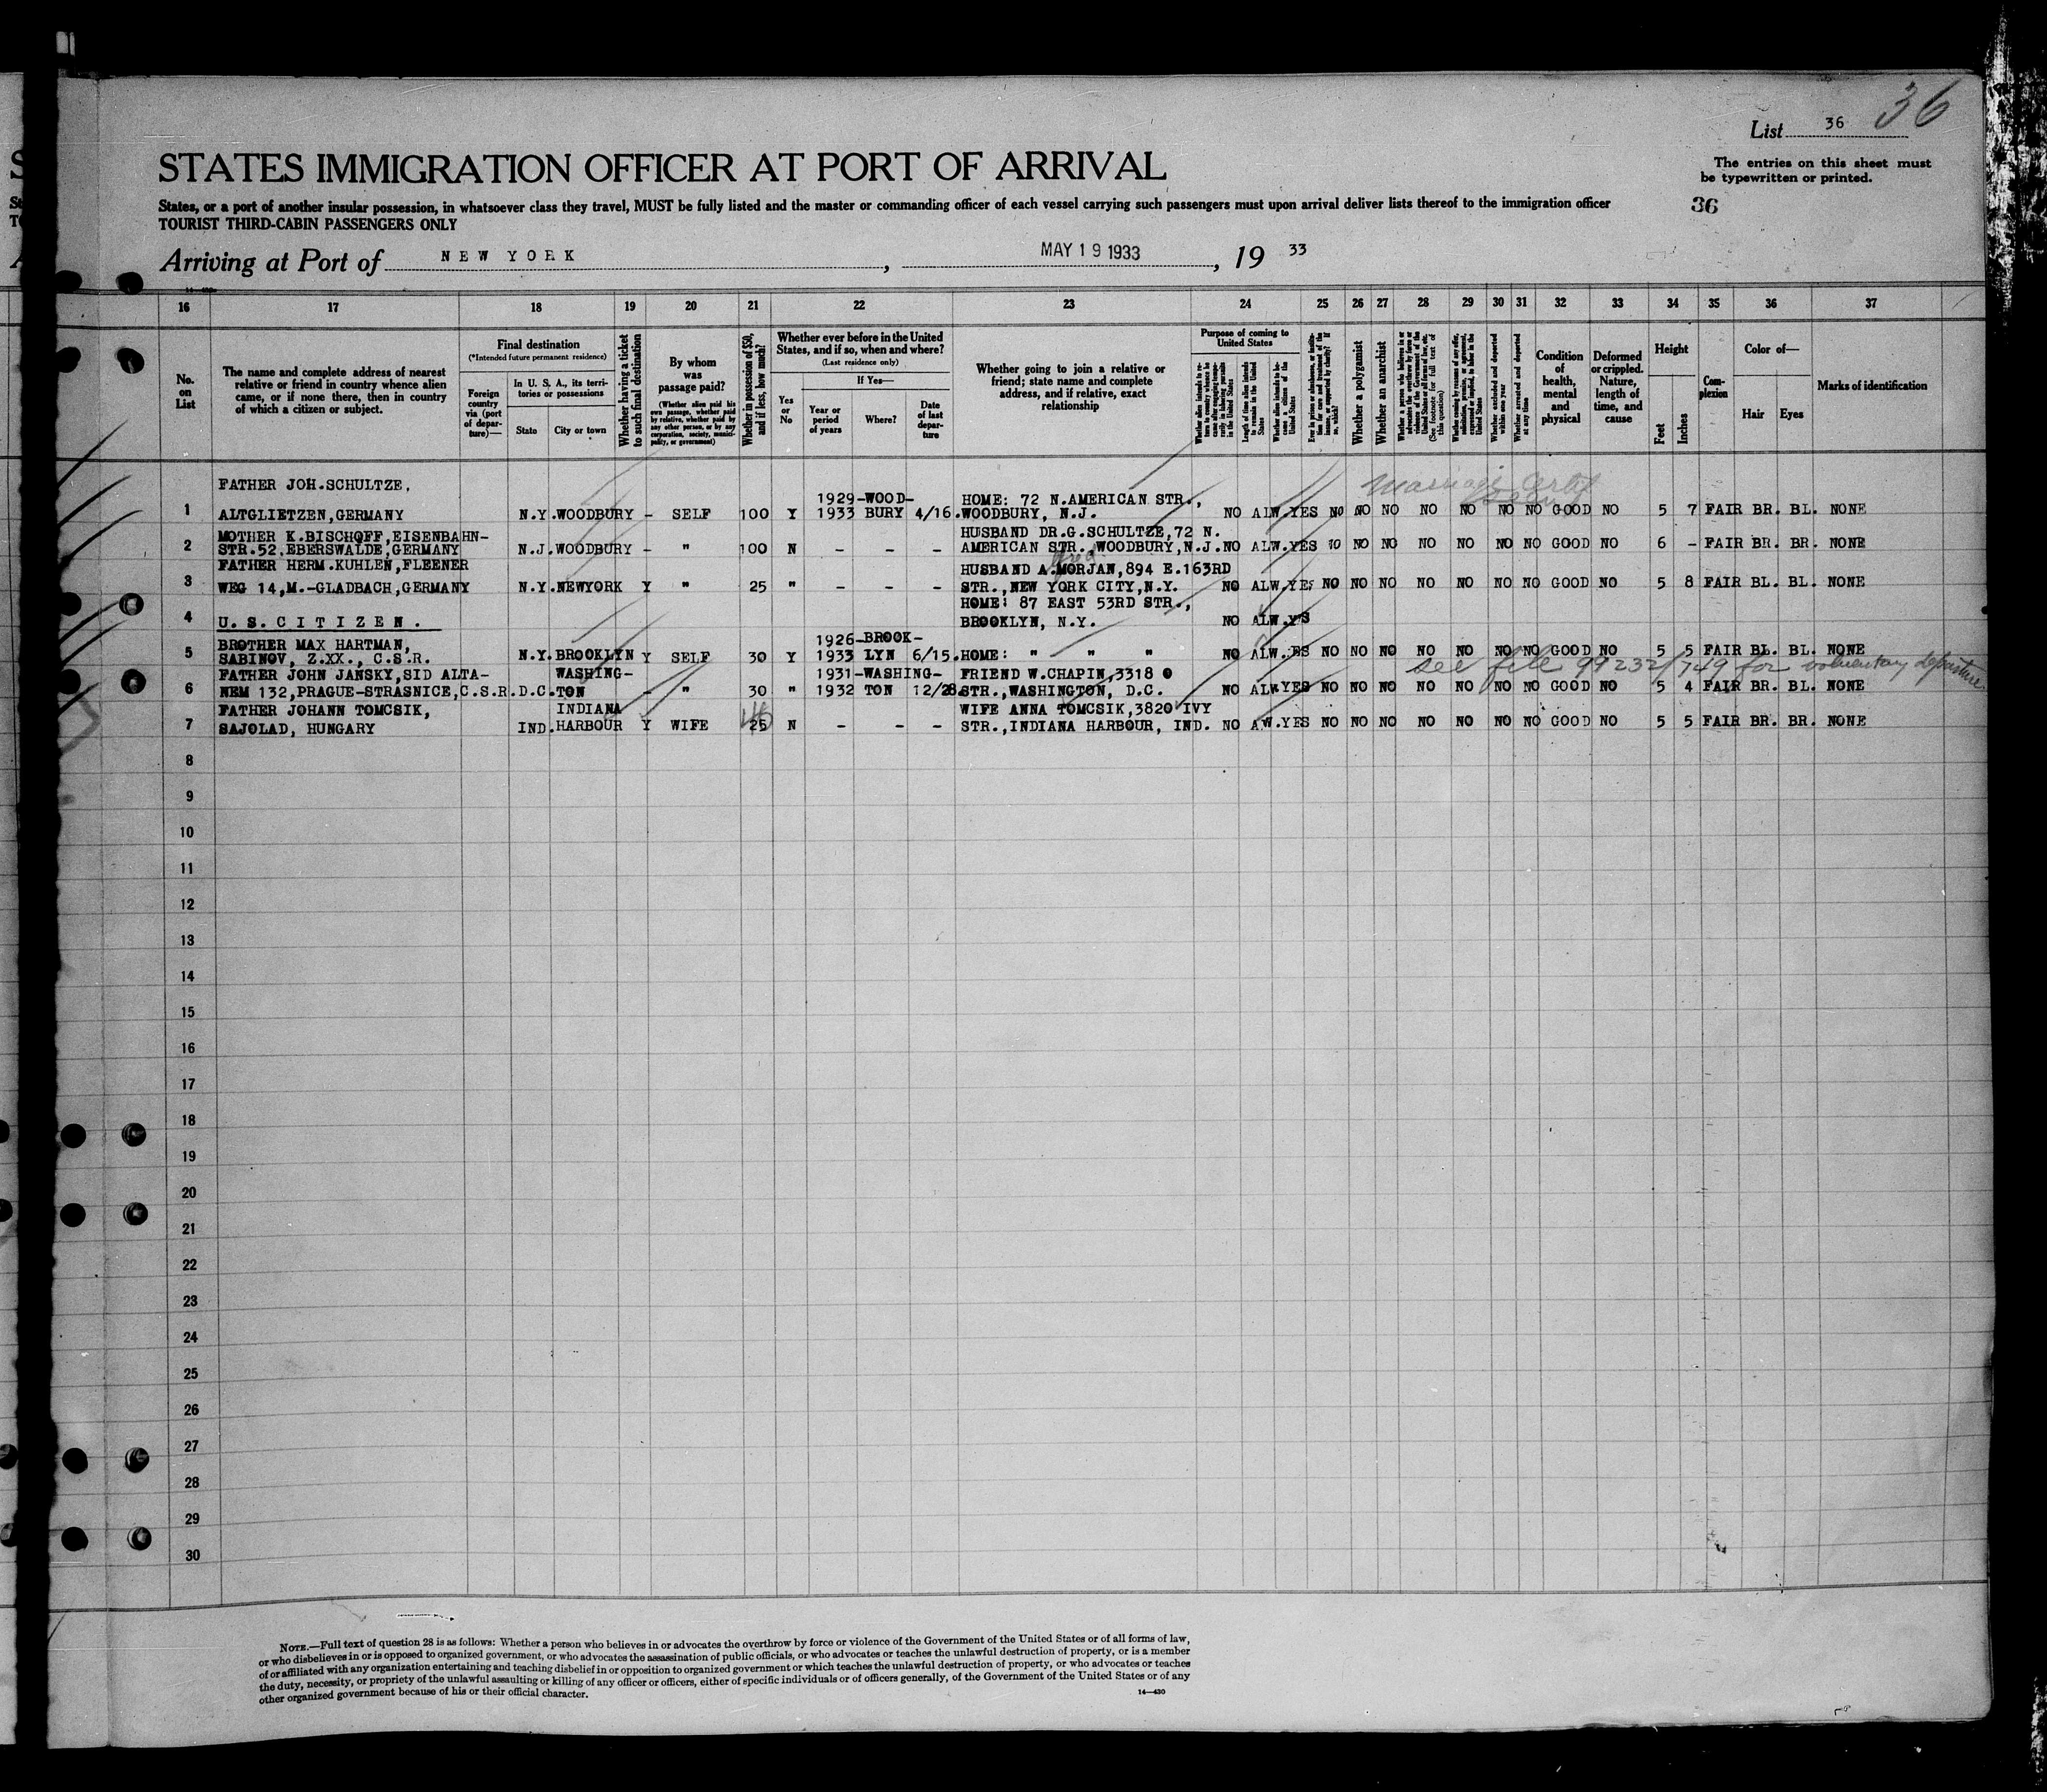 36
List 36
STATES IMMIGRATION OFFICER AT PORT OF ARRIVAL
The entries on this sheet must
be typewritten or printed.
States, or a port of another insular possession, in whatsoever class they travel, MUST be fully listed and the master or commanding officer of each vessel carrying such passengers must upon arrival deliver lists thereof to the immigration officer
TOURIST THIRD-CABIN PASSENGERS ONLY
36
Arriving at Port of NEW YORK, MAY 19 1933, 19 33
16 17 18 19 20 21 22 23 24 25 26 27 28 29 30 31 32 33 34 35 36 37
No.
on
List
The name and complete address of nearest
relative or friend in country whence alien
came, or if none there, then in country
of which a citizen or subject.
Final destination
(*Intended future permanent residence)
Foreign
country
via (port
of depar-
ture)—
In U. S. A., its terri-
tories or possessions
State
City or town
Whether having a ticket
to such final destination
By whom
was
passage paid?
(Whether alien paid his
own passage, whether paid
by relative, whether paid by
any other person, or by any
corporation, society, munici-
pality, or government)
Whether in possession of $50,
and if less, how much?
Whether ever before in the United
States, and if so, when and where?
(Last residence only)
Yes
or
No
If Yes—
Year or
period
of years
Where?
Date
of last
depar-
ture
Whether going to join a relative or
friend; state name and complete
address, and if relative, exact
relationship
Purpose of coming to
United States
Length of time alien intends
to remain in the United
States
Whether alien intends to be-
come a citizen of the
United States
Whether a polygamist
Whether an anarchist
Whether excluded and deported
within one year
Whether arrested and deported
at any time
Condition
of
health,
mental
and
physical
Deformed
or crippled.
Nature,
length of
time, and
cause
Height
Feet
Inches
Com-
plexion
Color of—
Hair
Eyes
Marks of identification
Marriage Certif
FATHER JOH.SCHULTZE,
1929-WOOD- HOME: 72 N.AMERICAN STR.,
1 ALTGLIETZEN,GERMANY N.Y. WOODBURY - SELF 100 Y 1933 BURY 4/16. WOODBURY, N.J. NO ALW. YES NO NO NO NO NO NO NO GOOD NO 5 7 FAIR BR. BL. NONE
MOTHER K.BISCHOFF,EISENBAHN- HUSBAND DR.G.SCHULTZE,72 N.
2 STR.52,EBERSWALDE,GERMANY N.J. WOODBURY - " 100 N - - - AMERICAN STR.,WOODBURY,N.J. NO ALW. YES NO NO NO NO NO NO GOOD NO 6 - FAIR BR. BR. NONE
FATHER HERM.KUHLEN,FLEENER HUSBAND A.MORJAN,894 E.163RD
3 WEG 14,M.-GLADBACH,GERMANY N.Y. NEWYORK Y " 25 " - - - STR.,NEW YORK CITY,N.Y. NO ALW. YES NO NO NO NO NO NO NO GOOD NO 5 8 FAIR BL. BL. NONE
HOME: 87 EAST 53RD STR.,
4 U.S.CITIZEN. BROOKLYN, N.Y. NO ALW.
BROTHER MAX HARTMAN, 1926-BROOK-
5 SABINOV, Z.XX., C.S.R. N.Y. BROOKLYN Y SELF 30 Y 1933 LYN 6/15. HOME: " " " NO ALW. NO NO NO NO NO NO NO GOOD NO 5 5 FAIR BL. BL. NONE
see file 99232/749 for voluntary departure
FATHER JOHN JANSKY,SID ALTA- WASHING- 1931-WASHING- FRIEND W.CHAPIN,3318 O
6 NEM 132,PRAGUE-STRASNICE,C.S.R. D.C. TON - " 30 " 1932 TON 12/28. STR.,WASHINGTON, D.C. NO ALW. YES NO NO NO NO NO NO NO GOOD NO 5 4 FAIR BR. BL. NONE
FATHER JOHANN TOMCSIK, INDIANA WIFE ANNA TOMCSIK,3820 IVY
7 SAJOLAD, HUNGARY IND. HARBOUR Y WIFE 25 N - - - STR.,INDIANA HARBOUR, IND. NO YES NO NO NO NO NO NO NO GOOD NO 5 5 FAIR BR. BR. NONE
8
9
10
11
12
13
14
15
16
17
18
19
20
21
22
23
24
25
26
27
28
29
30
NOTE.—Full text of question 28 is as follows: Whether a person who believes in or advocates the overthrow by force or violence of the Government of the United States or of all forms of law,
or who disbelieves in or is opposed to organized government, or who advocates the assassination of public officials, or who advocates or teaches the unlawful destruction of property, or is a member
of or affiliated with any organization entertaining and teaching disbelief in or opposition to organized government or which teaches the unlawful destruction of property, or who advocates or teaches
the duty, necessity, or propriety of the unlawful assaulting or killing of any officer or officers, either of specific individuals or of officers generally, of the Government of the United States or of any
other organized government because of his or their official character.
14—430